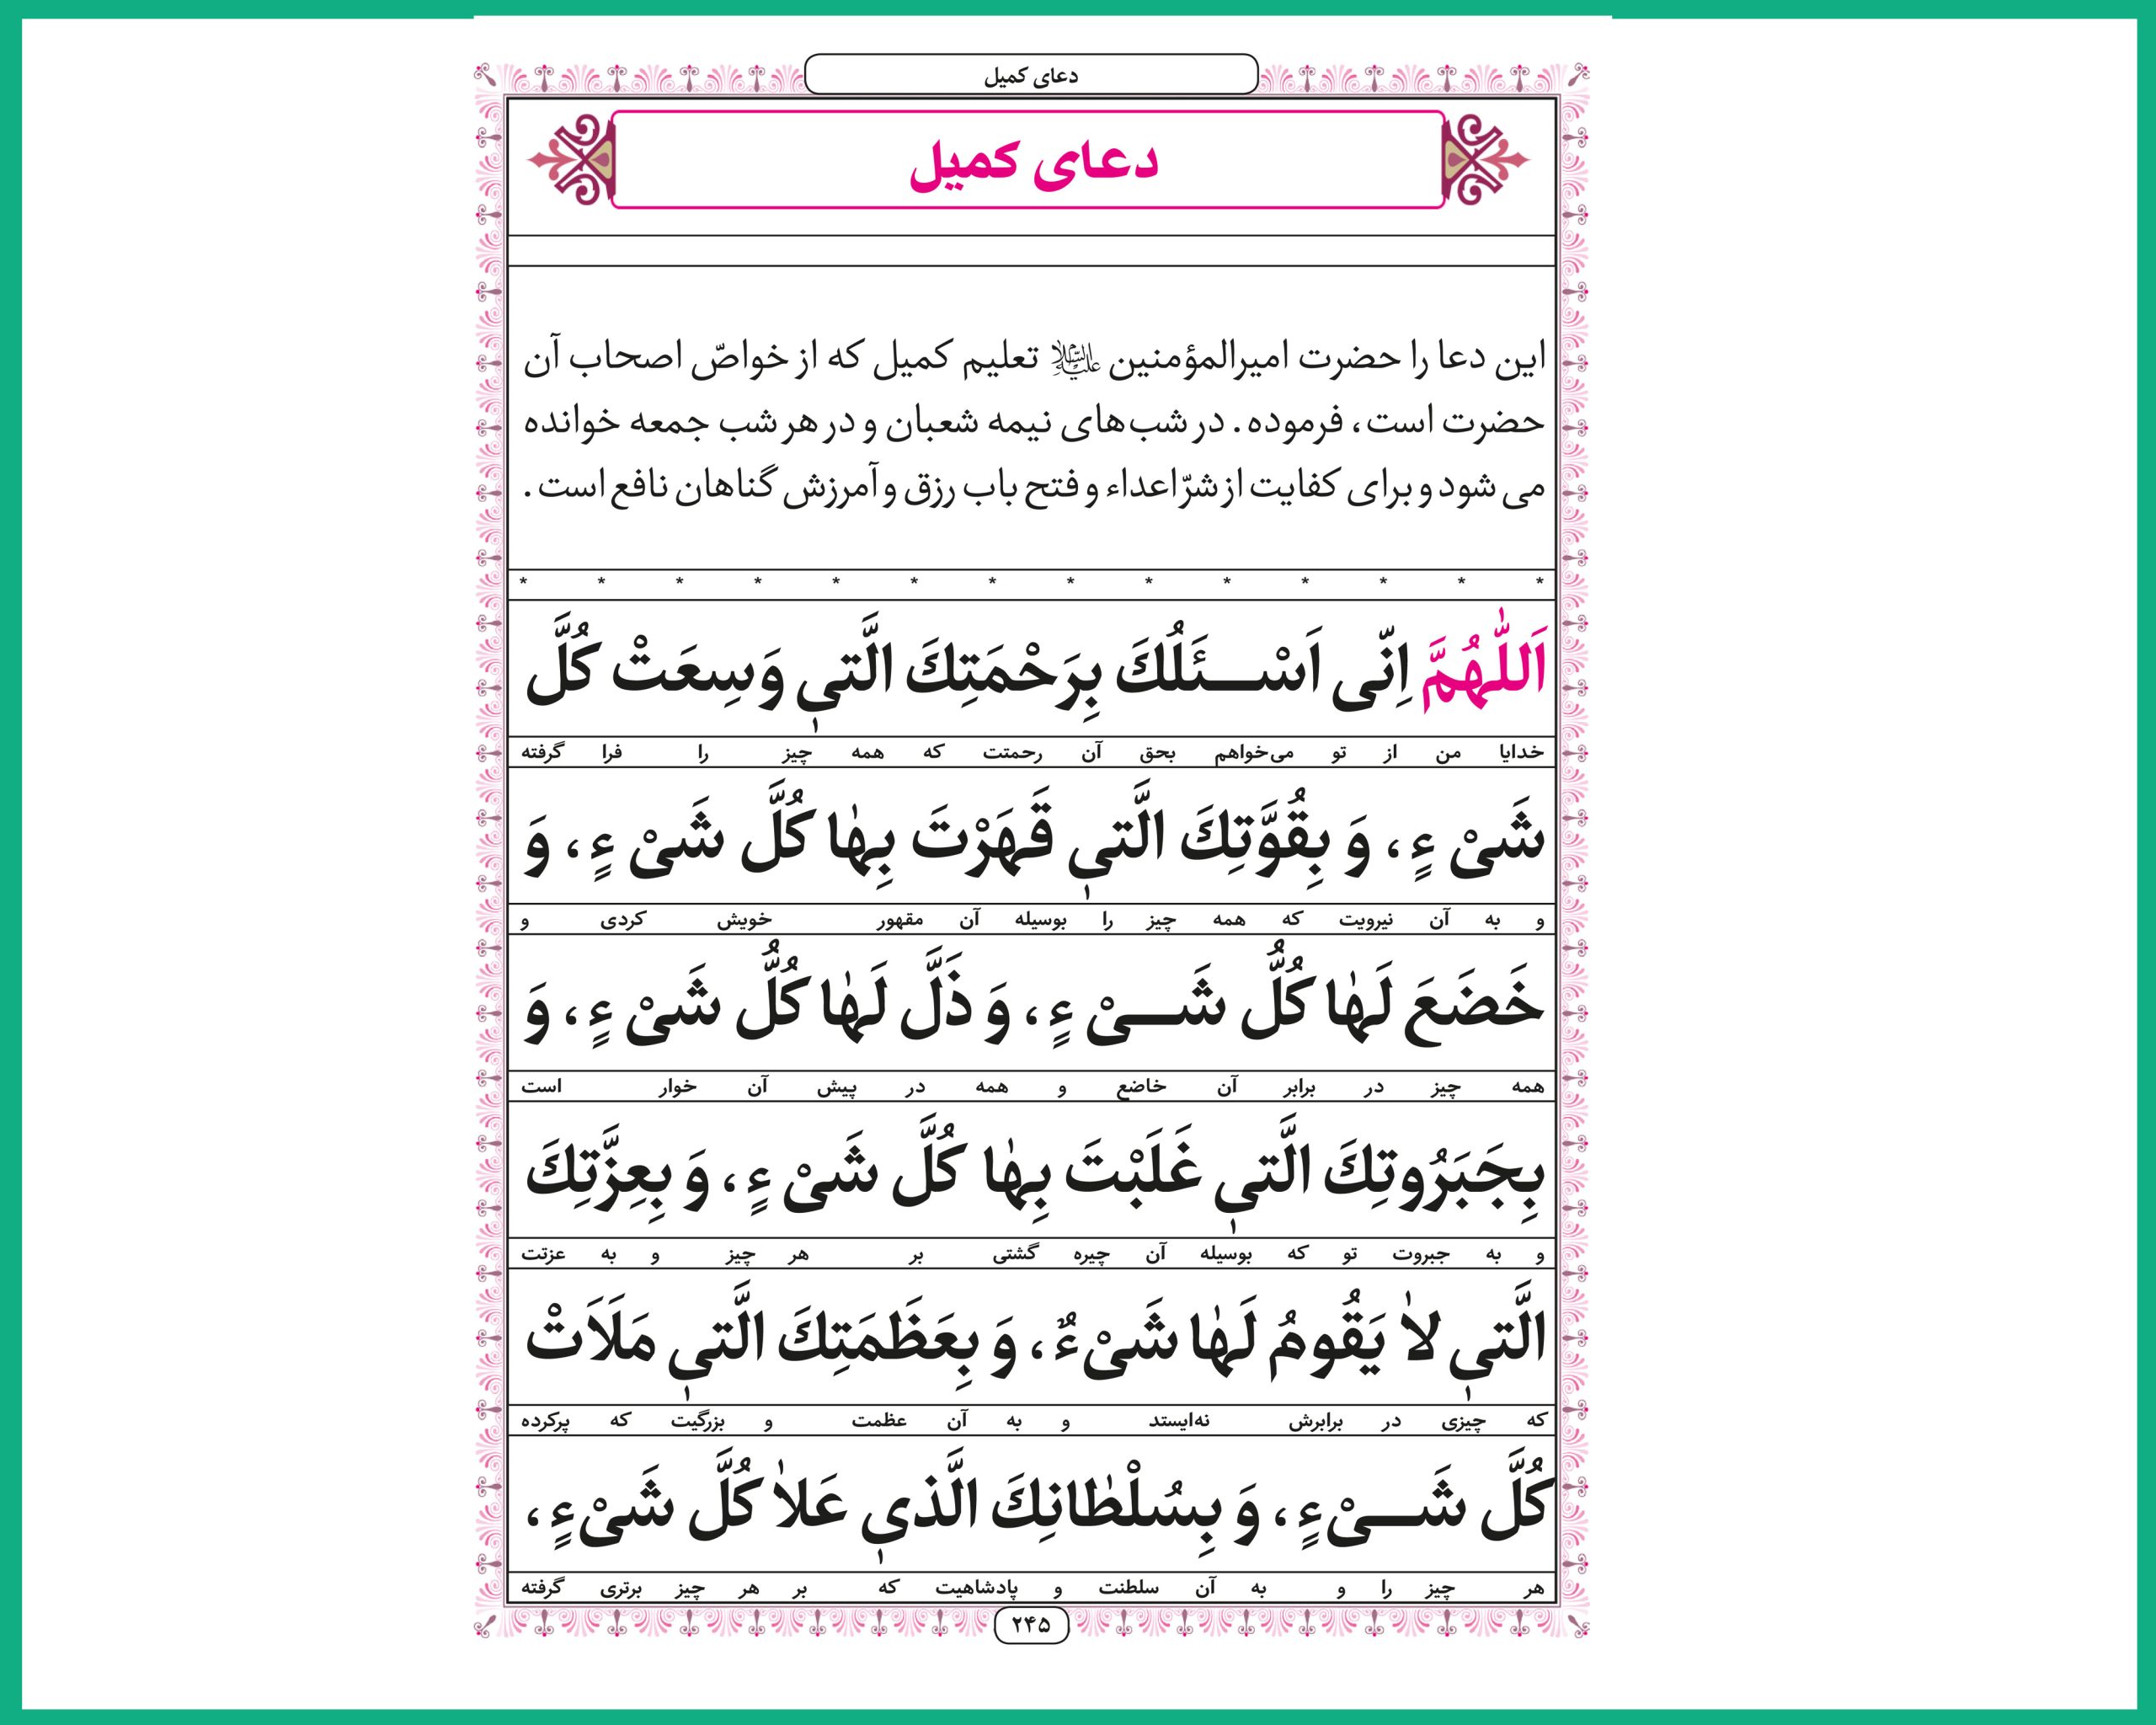 دعای کمیل
دعای کمیل
این دعا را حضرت امیرالمؤمنین علیه‌السلام تعلیم کمیل که از خواصّ اصحاب آن
حضرت است، فرموده. در شب‌های نیمه شعبان و در هر شب جمعه خوانده
می شود و برای کفایت از شرّ اعداء و فتح باب رزق و آمرزش گناهان نافع است.
* * * * * * * * * * * * * *
اَللّٰهُمَّ اِنّی اَسْـــئَلُكَ بِرَحْمَتِكَ الَّتیٖ وَسِعَتْ كُلَّ
خدایا من از تو می‌خواهم بحق آن رحمتت که همه چیز را فرا گرفته
شَیْ ءٍ، وَ بِقُوَّتِكَ الَّتیٖ قَهَرْتَ بِهٰا كُلَّ شَیْ ءٍ، وَ
و به آن نیرویت که همه چیز را بوسیله آن مقهور خویش کردی و
خَضَعَ لَهٰا كُلُّ شَـــیْ ءٍ، وَ ذَلَّ لَهٰا كُلُّ شَیْ ءٍ، وَ
همه چیز در برابر آن خاضع و همه در پیش آن خوار است
بِجَبَرُوتِكَ الَّتیٖ غَلَبْتَ بِهٰا كُلَّ شَیْ ءٍ، وَ بِعِزَّتِكَ
و به جبروت تو که بوسیله آن چیره گشتی بر هر چیز و به عزتت
الَّتیٖ لاٰ یَقُومُ لَهٰا شَیْءٌ، وَ بِعَظَمَتِكَ الَّتیٖ مَلَاَتْ
که چیزی در برابرش نه‌ایستد و به آن عظمت و بزرگیت که پرکرده
كُلَّ شَـــیْءٍ، وَ بِسُلْطٰانِكَ الَّذیٖ عَلاٰ كُلَّ شَیْءٍ،
هر چیز را و به آن سلطنت و پادشاهیت که بر هر چیز برتری گرفته
۲۴۵